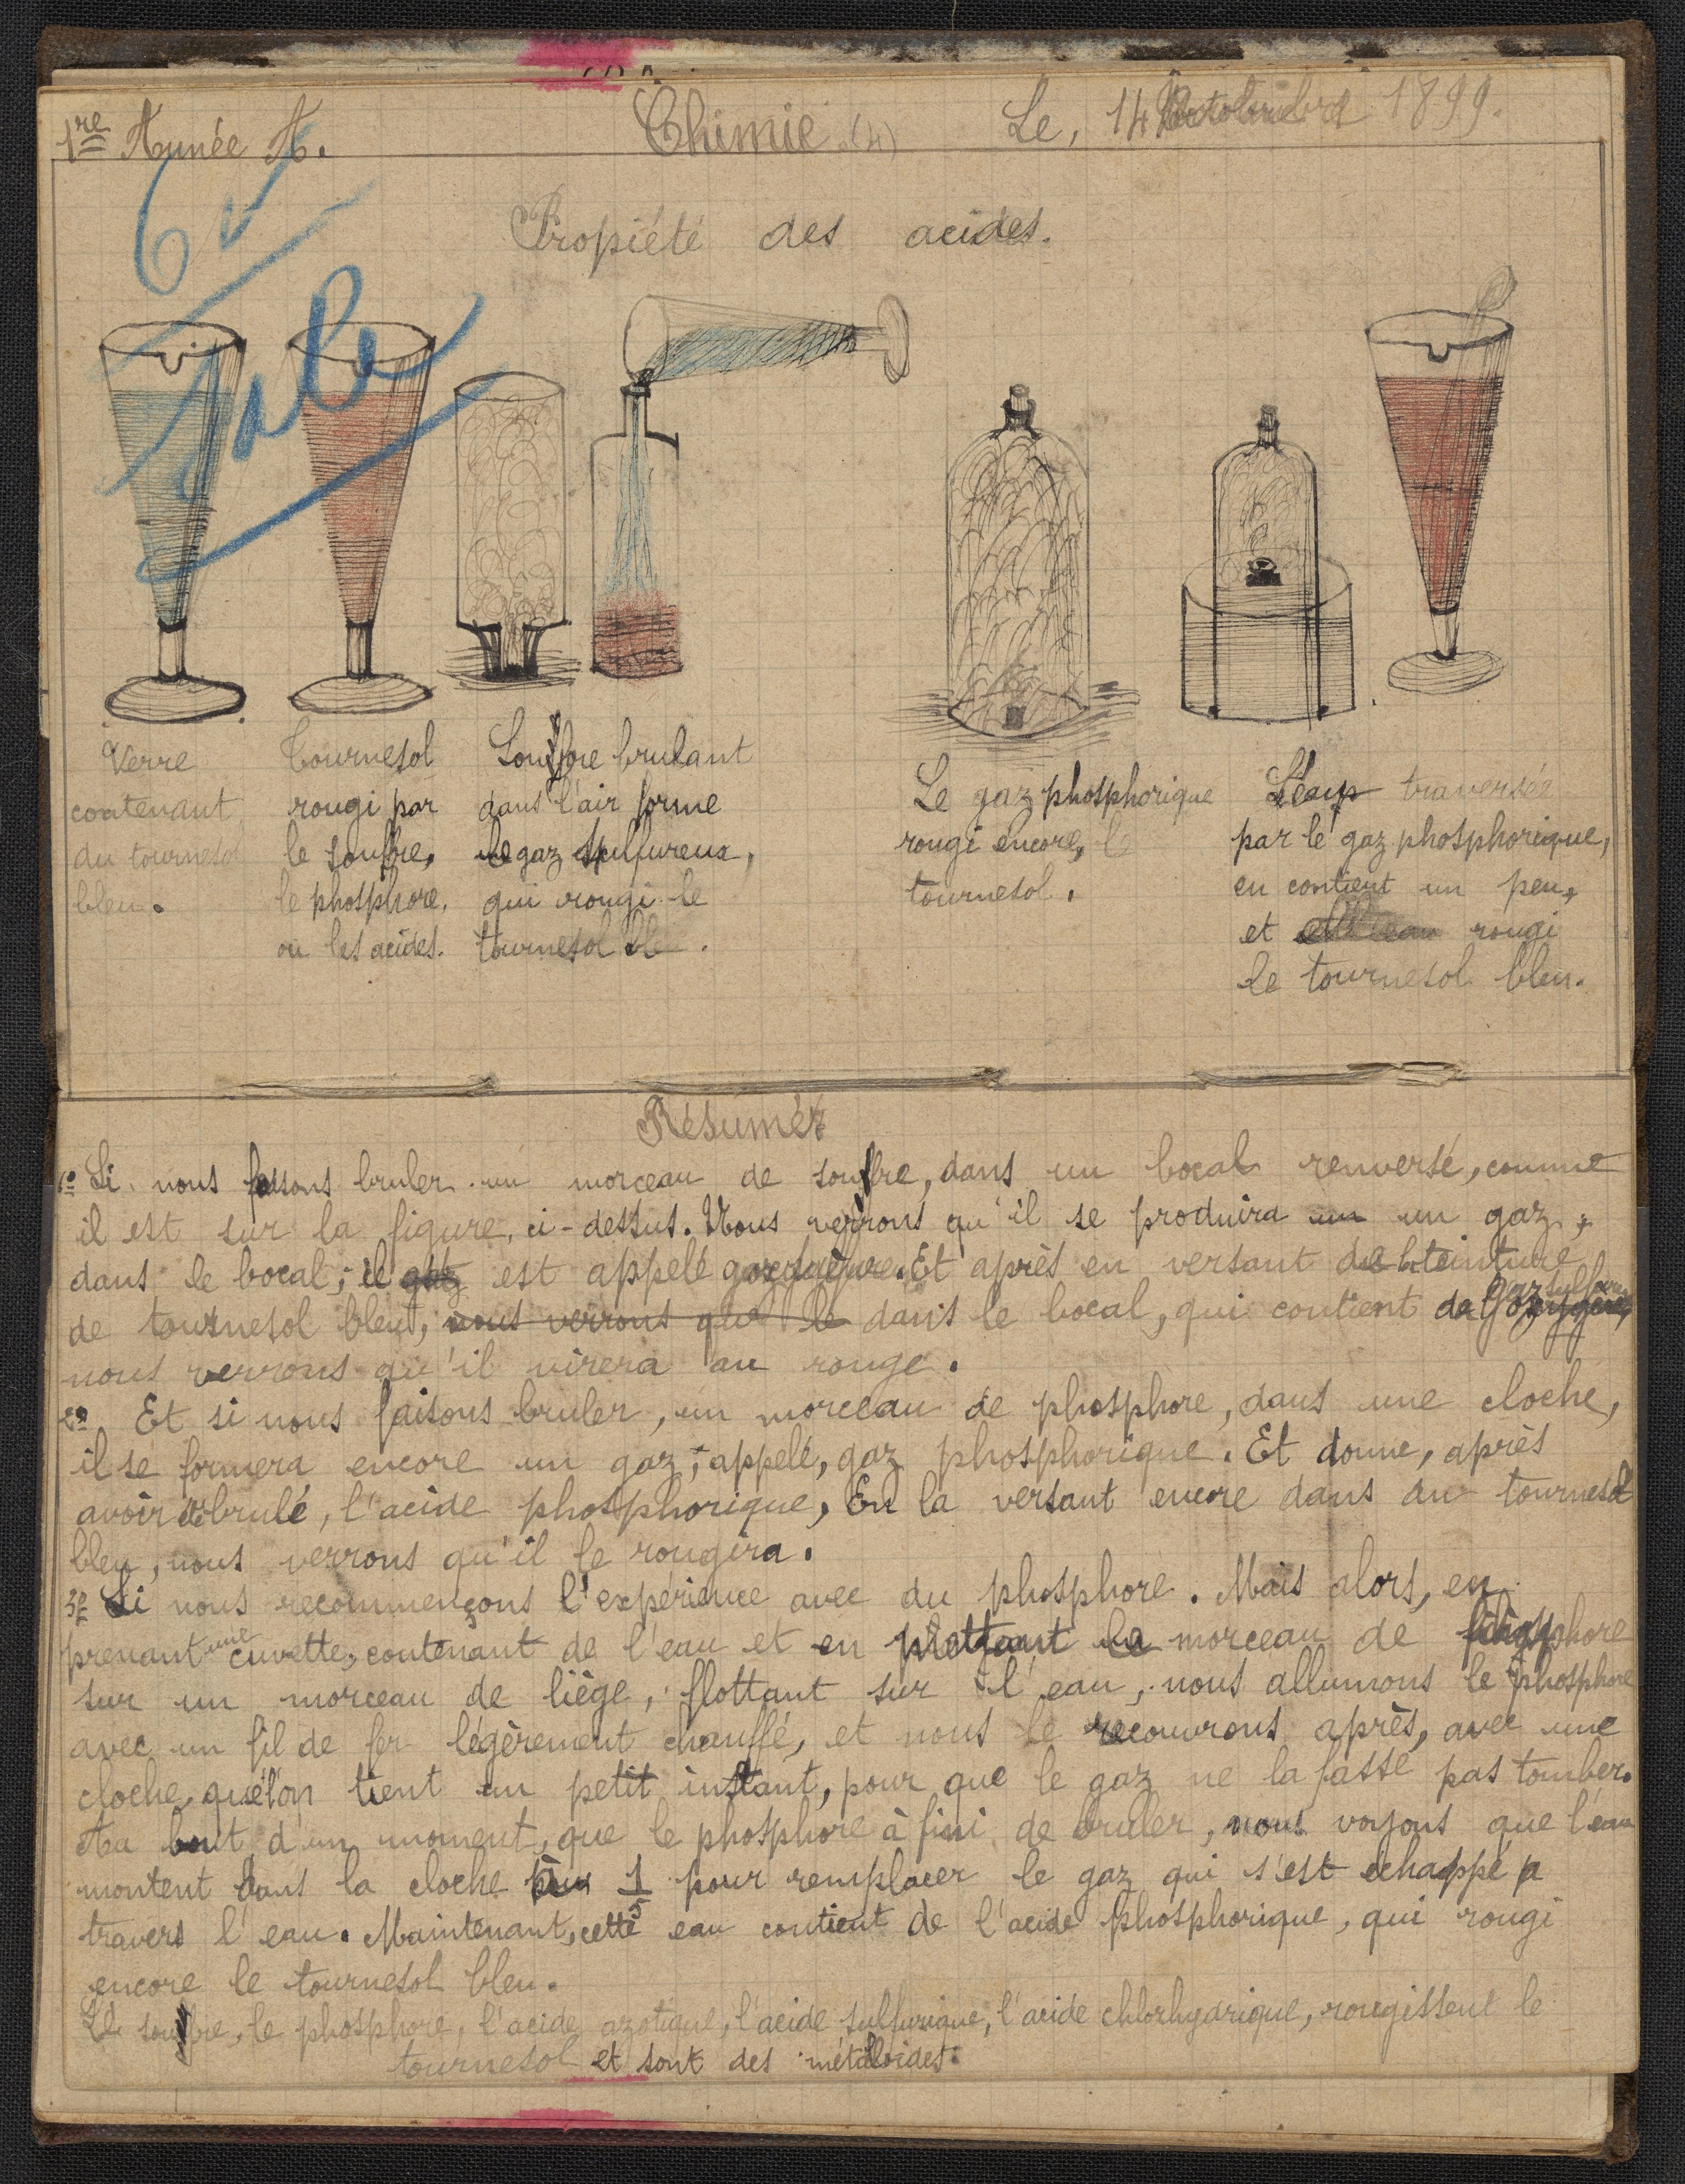 1re Année A. Chimie. (4) Le, 14 1899.
6
Sale
Propiété des acides.
Verre
contenant
du tournesol
bleu.
Tournesol
rougi par
le soufre,
le phosphore,
ou les acides.
Soufre brulant
dans l'air forme
le gaz sulfureux,
qui rougi le
tournesol
Le gaz phosphorique
rougi encore, le
tournesol.
L'eau traversée
par le gaz phosphorique,
en contient un peu,
et rougi
le tournesol bleu.
Résumér
1º Si nous faisons bruler un morceau de soufre, dans un bocal renversé, comme
il est sur la figure, ci-dessus. Nous verrons qu'il se produira un gaz,
dans le bocal, il est appelé Et après en versant de la teinture
de tournesol bleu, nous verrons que le dans le bocal, qui contient
nous verrons qu'il virera au rouge.
2º. Et si nous faisons bruler, un morceau de phosphore, dans une cloche,
il se formera encore un gaz, appelé, gaz phosphorique. Et donne, après
avoir brulé, l'acide phosphorique, En la versant encore dans du tournesol
bleu, nous verrons qu'il le rougira.
3º Si nous recommençons l'expérience avec du phosphore. Mais alors, en
prenant une cuvette, contenant de l'eau et en mettant le morceau de phosphore
sur un morceau de liège, flottant sur l'eau, nous allumons le phosphore
avec un fil de fer légèrement chauffé, et nous le recouvrons après, avec une
cloche, que l'on tient un petit instant, pour que le gaz ne la fasse pas tomber.
Au bout d'un moment, que le phosphore à fini de bruler, nous voyons que l'eau
montent dans la cloche 1/5 pour remplacer le gaz qui s'est échappé a
travers l'eau. Maintenant, cette eau contient de l'acide phosphorique, qui rougi
encore le tournesol bleu.
Le soufre, le phosphore, l'acide azotique, l'acide sulfurique, l'acide chlorhydrique, rougissent le
tournesol et sont des métalloides.